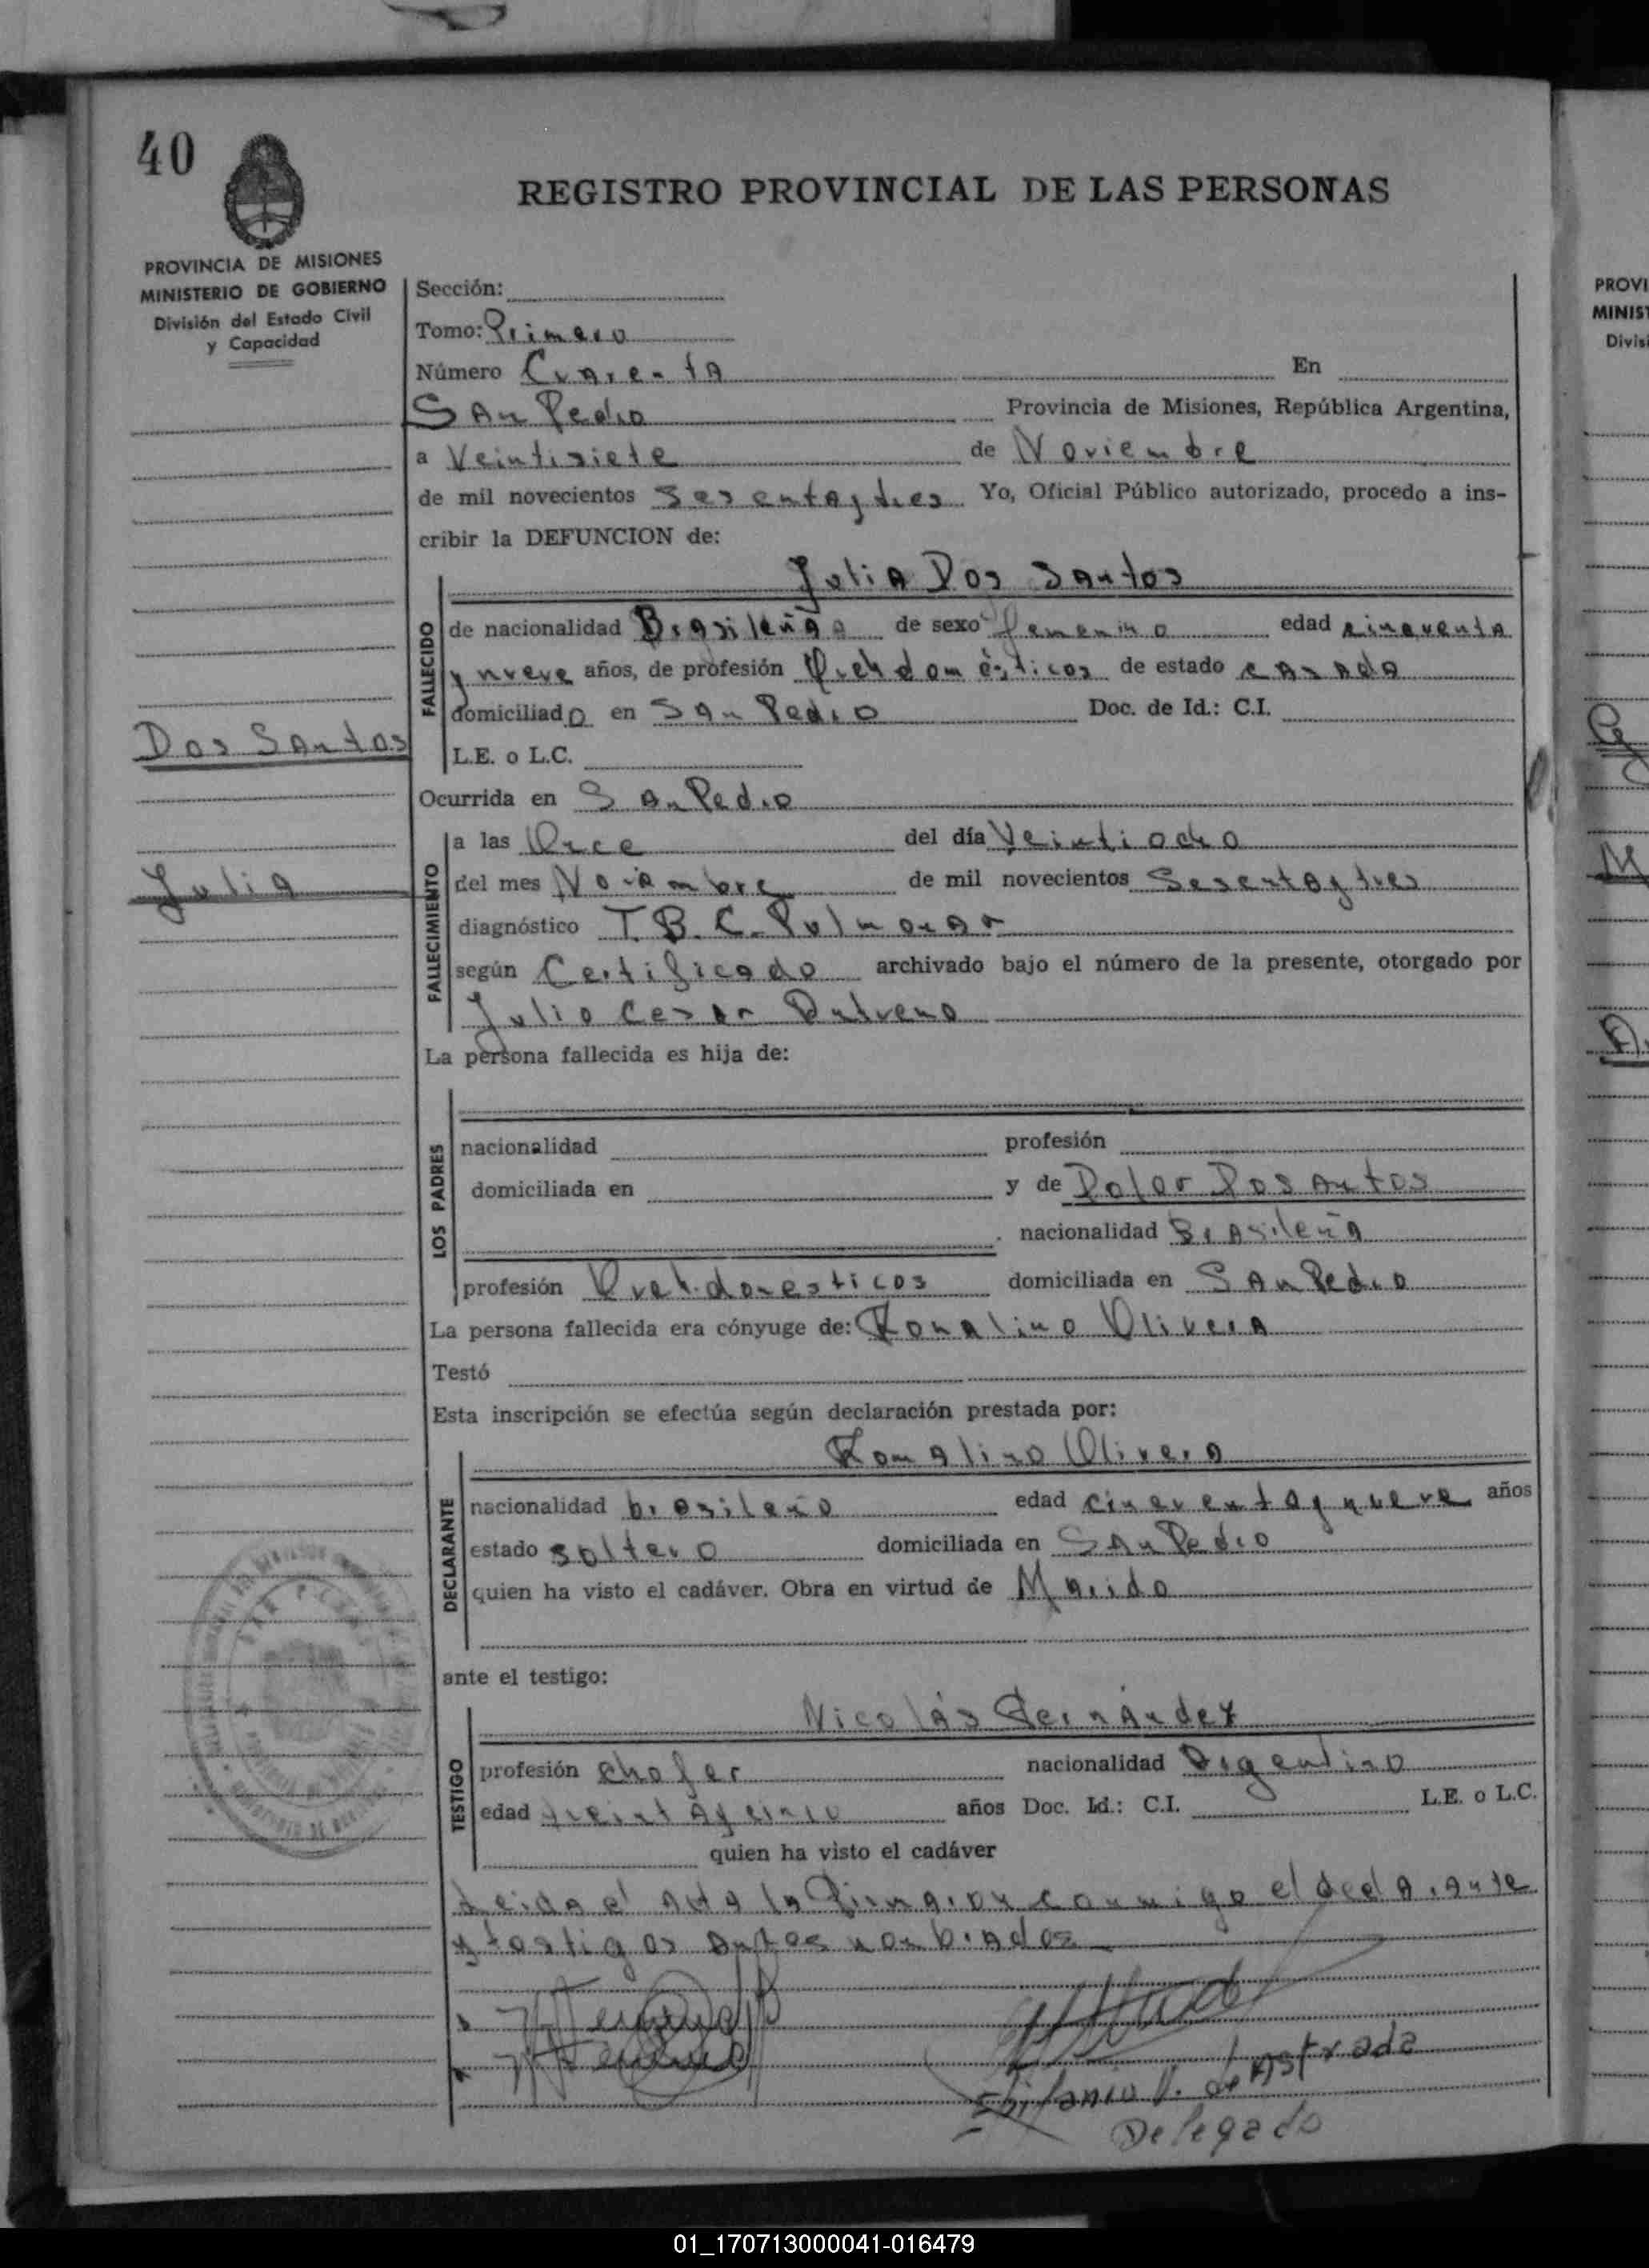 40
REGISTRO PROVINCIAL DE LAS PERSONAS
PROVINCIA DE MISIONES
MINISTERIO DE GOBIERNO
División del Estado Civil
y Capacidad
Dos Santos
Julia
Sección:
Tomo: Primero
Número Cuarenta En
San Pedro Provincia de Misiones, República Argentina,
a Veintisiete de Noviembre
de mil novecientos Sesentaytres Yo, Oficial Público autorizado, procedo a ins-
cribir la DEFUNCION de:
Julia Dos Santos
FALLECIDO
de nacionalidad Brasileña de sexo femenino edad cincuenta
y nueve años, de profesión Queh domésticos de estado casada
domiciliado en San Pedro Doc. de Id.: C.I.
L.E. o L.C.
Ocurrida en San Pedro
FALLECIMIENTO
a las Once del día Veintiocho
del mes Noviembre de mil novecientos Sesentaytres
diagnóstico T.B.C. Pulmonar
según Certificado archivado bajo el número de la presente, otorgado por
Julio Cesar
La persona fallecida es hija de:
LOS PADRES
nacionalidad profesión
domiciliada en y de Dolor Dos Antos
nacionalidad Brasileña
profesión Queh. domesticos domiciliada en San Pedro
La persona fallecida era cónyuge de: Romalino Olivera
Testó
Esta inscripción se efectúa según declaración prestada por:
Romalino Olivera
DECLARANTE
nacionalidad brasileño edad cincuentaynueve años
estado soltero domiciliada en San Pedro
quien ha visto el cadáver. Obra en virtud de Marido
ante el testigo:
Nicolás Fernández
TESTIGO
profesión chofer nacionalidad Argentino
edad treintaycinco años Doc. Id.: C.I. L.E. o L.C.
quien ha visto el cadáver
Leida el Acta la firmaron conmigo el declarante
y testigos antes nombrados
Epifanio V. de Astrada
Delegado
PROVI
MINIST
Divisi
01_170713000041-016479